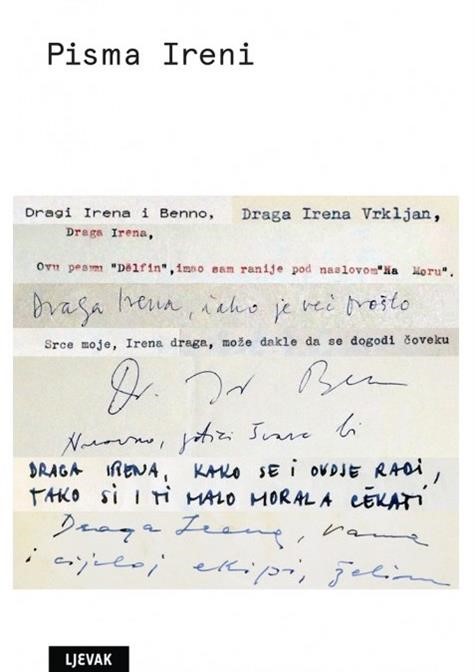 Pisma Ireni
Dragi Irena i Benno, Draga Irena Vrkljan,
Draga Irena,
Ovu pesmu "Dëlfin",imao sam ranije pod naslovom"Na Moru".
Draga Irena, iako je već prošlo
Srce moje, Irena draga, može dakle da se dogodi čoveku
DRAGA IRENA, KAKO SE I OVDJE RADI,
TAKO SI I TI MALO MORALA ČEKATI
Draga Irena, Vama
i cijeloj ekipi, želim
LJEVAK